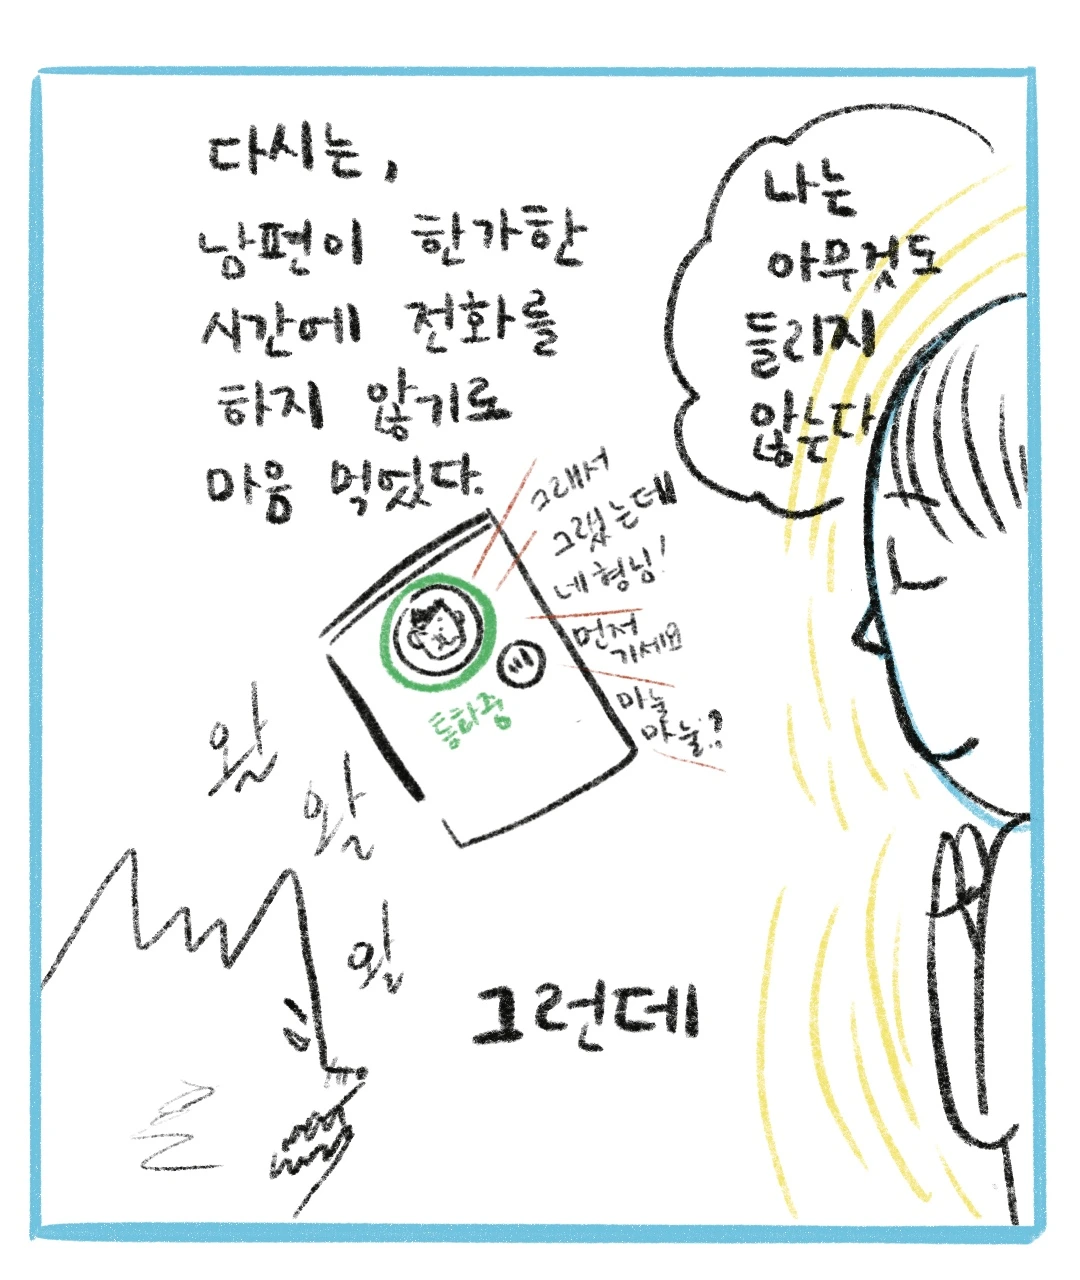 다시는,
남편이 한가한
시간에 전화를
하지 않기로
마음 먹었다.
나는
아무것도
들리지
않는다
그래서
그랬는데
네 형님!
먼저
가세요
마늘
마늘?
통화중
왈
왈
왈
그런데